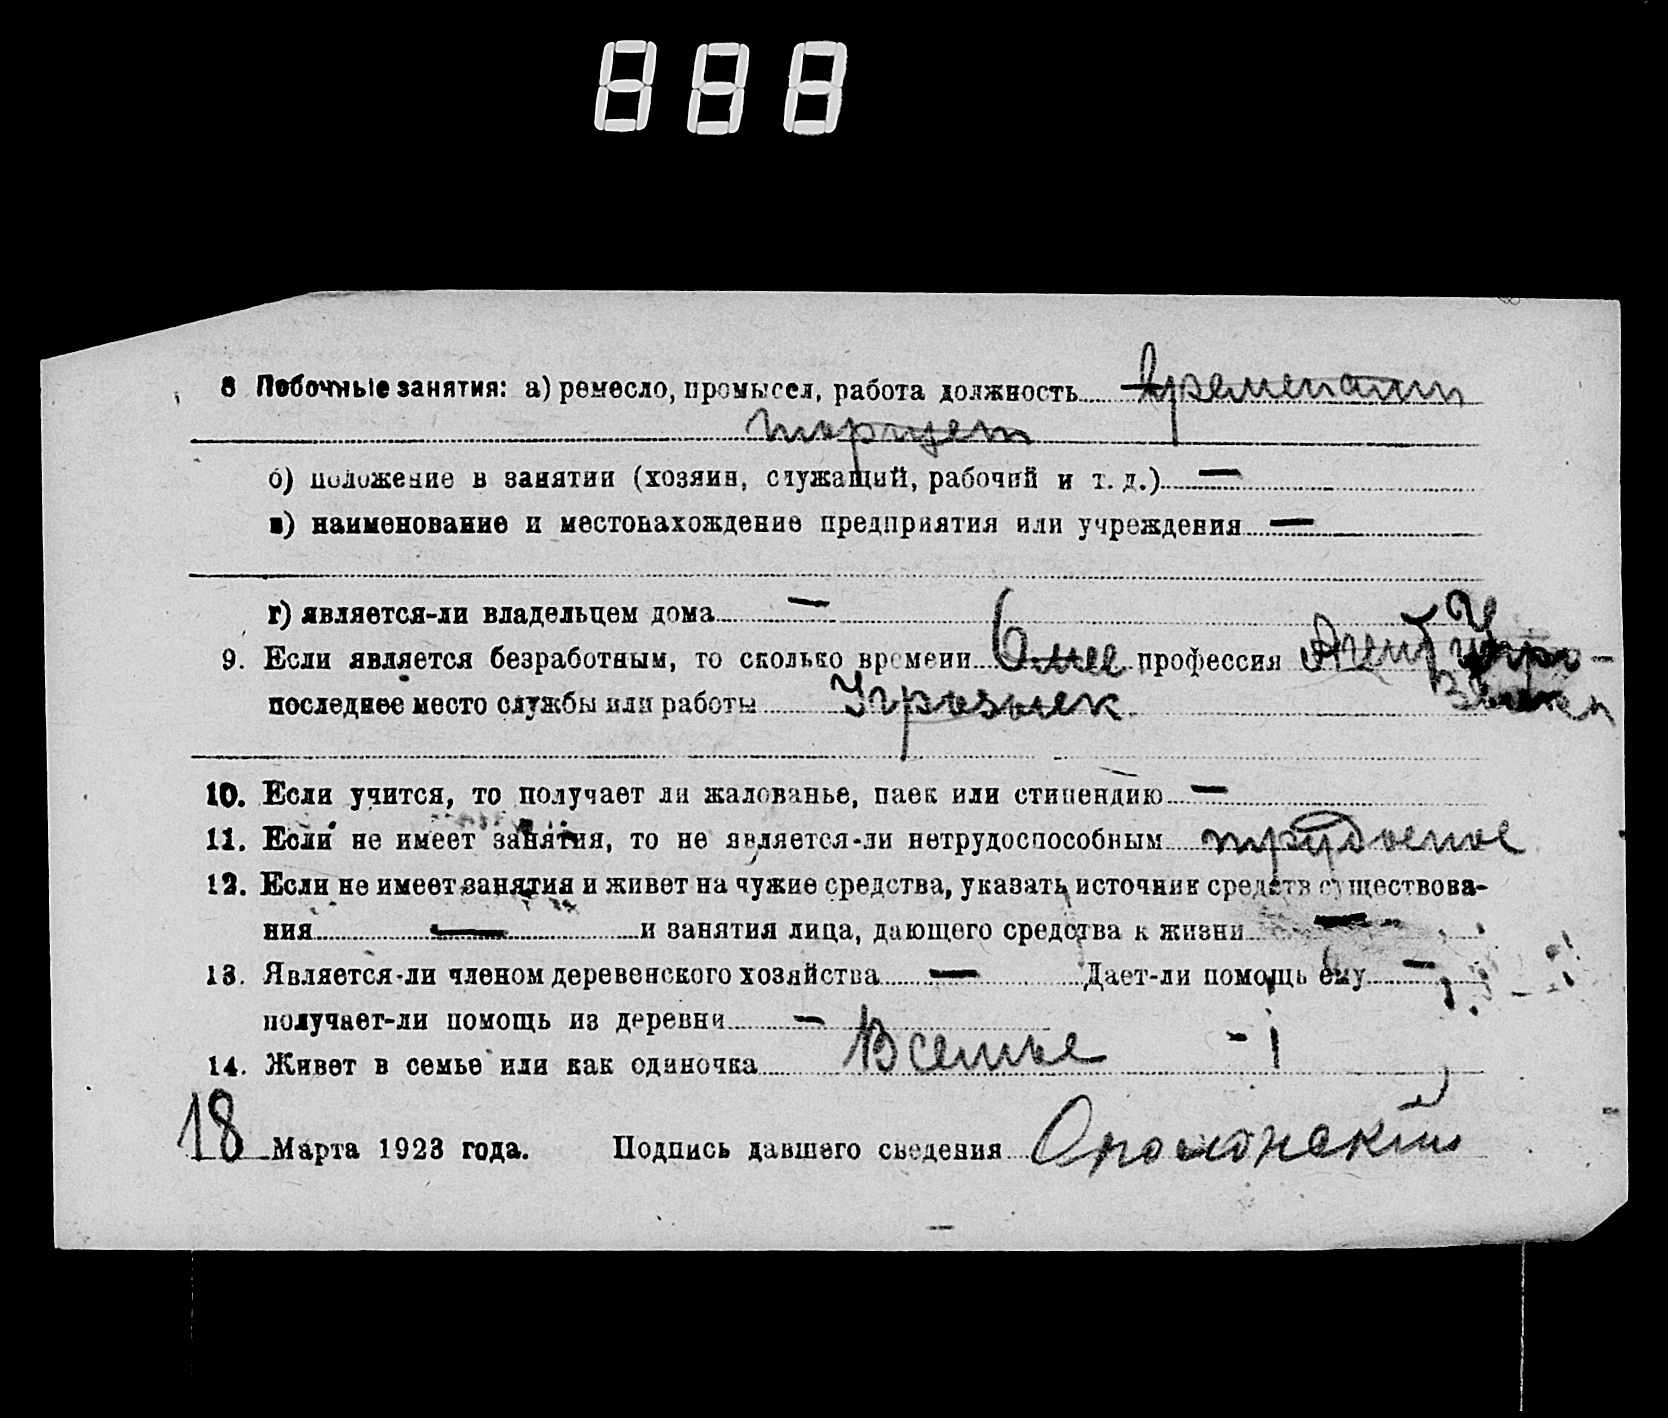 888
8 Побочные занятия: а) ремесло, промысел, работа должность
торгует
б) положение в занятии (хозяин, служащий, рабочий и т. д.) —
в) наименование и местонахождение предприятия или учреждения —
г) является-ли владельцем дома —
9. Если является безработным, то сколько времени 6 мес профессия Агент
последнее место службы или работы
10. Если учится, то получает ли жалованье, паек или стипендию —
11. Если не имеет занятия, то не является-ли нетрудоспособным
12. Если не имеет занятия и живет на чужие средства, указать источник средств существова-
ния — и занятия лица, дающего средства к жизни —
13. Является-ли членом деревенского хозяйства — Дает-ли помощь ему —
получает-ли помощь из деревни —
14. Живет в семье или как одиночка В семье
18 Марта 1923 года. Подпись давшего сведения